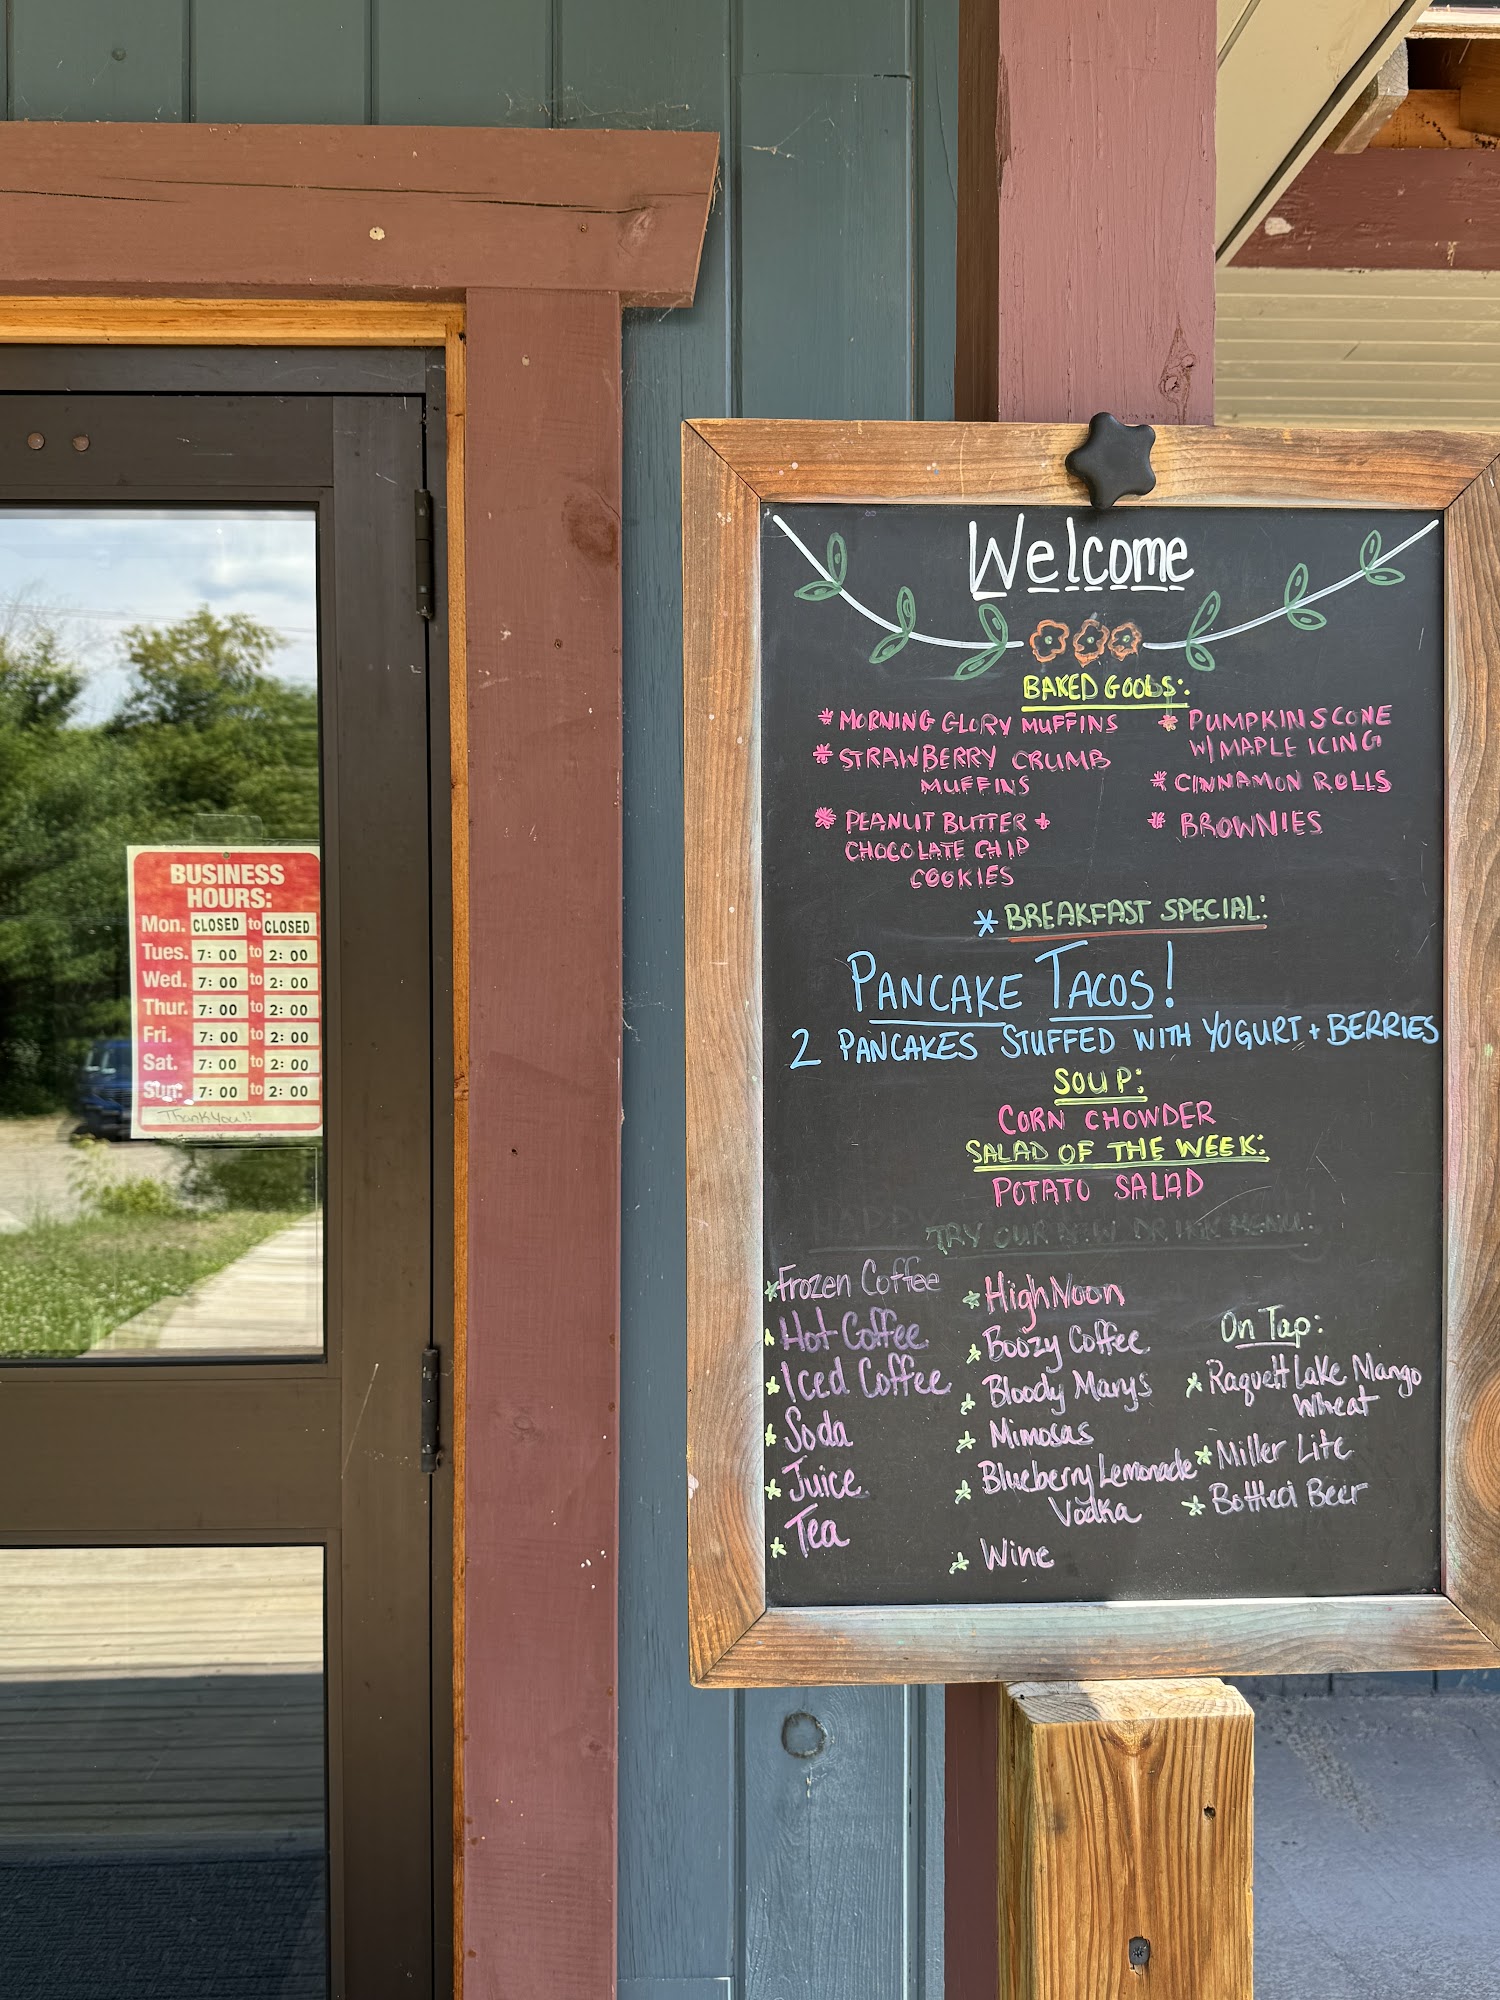 BUSINESS
HOURS:
Mon. CLOSED to CLOSED
Tues. 7:00 to 2:00
Wed. 7:00 to 2:00
Thur. 7:00 to 2:00
Fri. 7:00 to 2:00
Sat. 7:00 to 2:00
Sun. 7:00 to 2:00
Thank You!!
Welcome
BAKED GOODS:
* MORNING GLORY MUFFINS
* STRAWBERRY CRUMB
MUFFINS
* PEANUT BUTTER +
CHOCOLATE CHIP
COOKIES
* PUMPKIN SCONE
W/ MAPLE ICING
* CINNAMON ROLLS
* BROWNIES
* BREAKFAST SPECIAL:
PANCAKE TACOS!
2 PANCAKES STUFFED WITH YOGURT + BERRIES
SOUP:
CORN CHOWDER
SALAD OF THE WEEK:
POTATO SALAD
TRY OUR NEW DRINK MENU:
* Frozen Coffee
* Hot Coffee
* Iced Coffee
* Soda
* Juice
* Tea
* High Noon
* Boozy Coffee
* Bloody Marys
* Mimosas
* Blueberry Lemonade
Vodka
* Wine
On Tap:
* Raquett Lake Mango
Wheat
* Miller Lite
* Bottled Beer